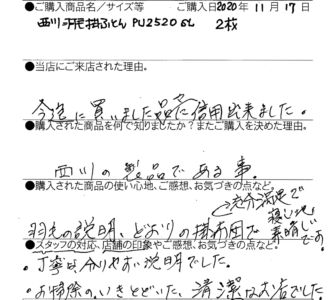 ●ご購入商品名／サイズ等　ご購入日2020年 11月 17日
西川 羽毛掛ふとん PU2520 GL　2枚
●当店にご来店された理由。
今迄に買いました品々に信用出来ました。
●購入された商品を何で知りましたか？またご購入を決めた理由。
西川の製品である事。
●購入された商品の使い心地、ご感想、お気づきの点など。
羽毛の説明、どおりの掛布団で
充分満足で
寝心地
素晴しいです
●スタッフの対応、店舗の印象やご感想、お気づきの点など。
・丁寧な分りやすい説明でした。
・お掃除のいきとどいた、清潔なお店でした